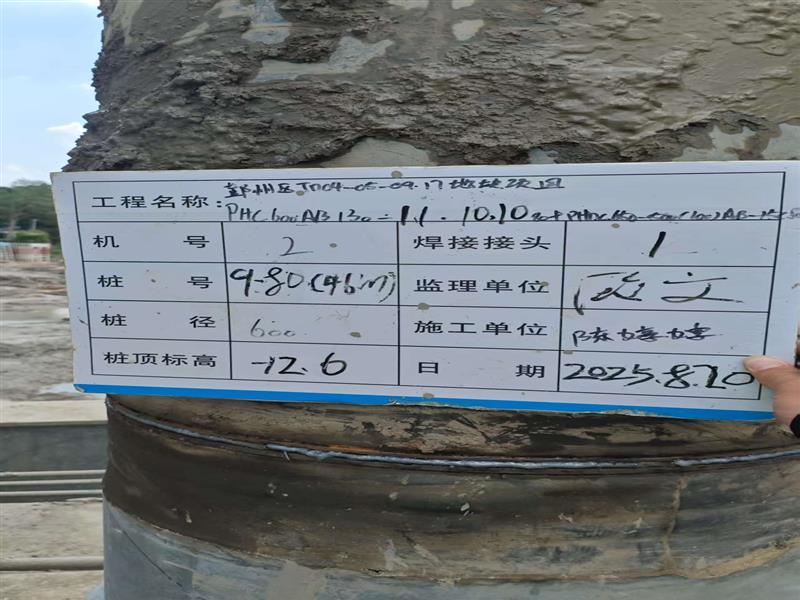 工程名称: 鄞州区JD04-05-09.17地块项目
PHC 600 AB 130 - 11.10.10
机号 2 焊接接头 1
桩号 9-80(46m) 监理单位
桩径 600 施工单位
桩顶标高 -12.6 日期 2025.8.20